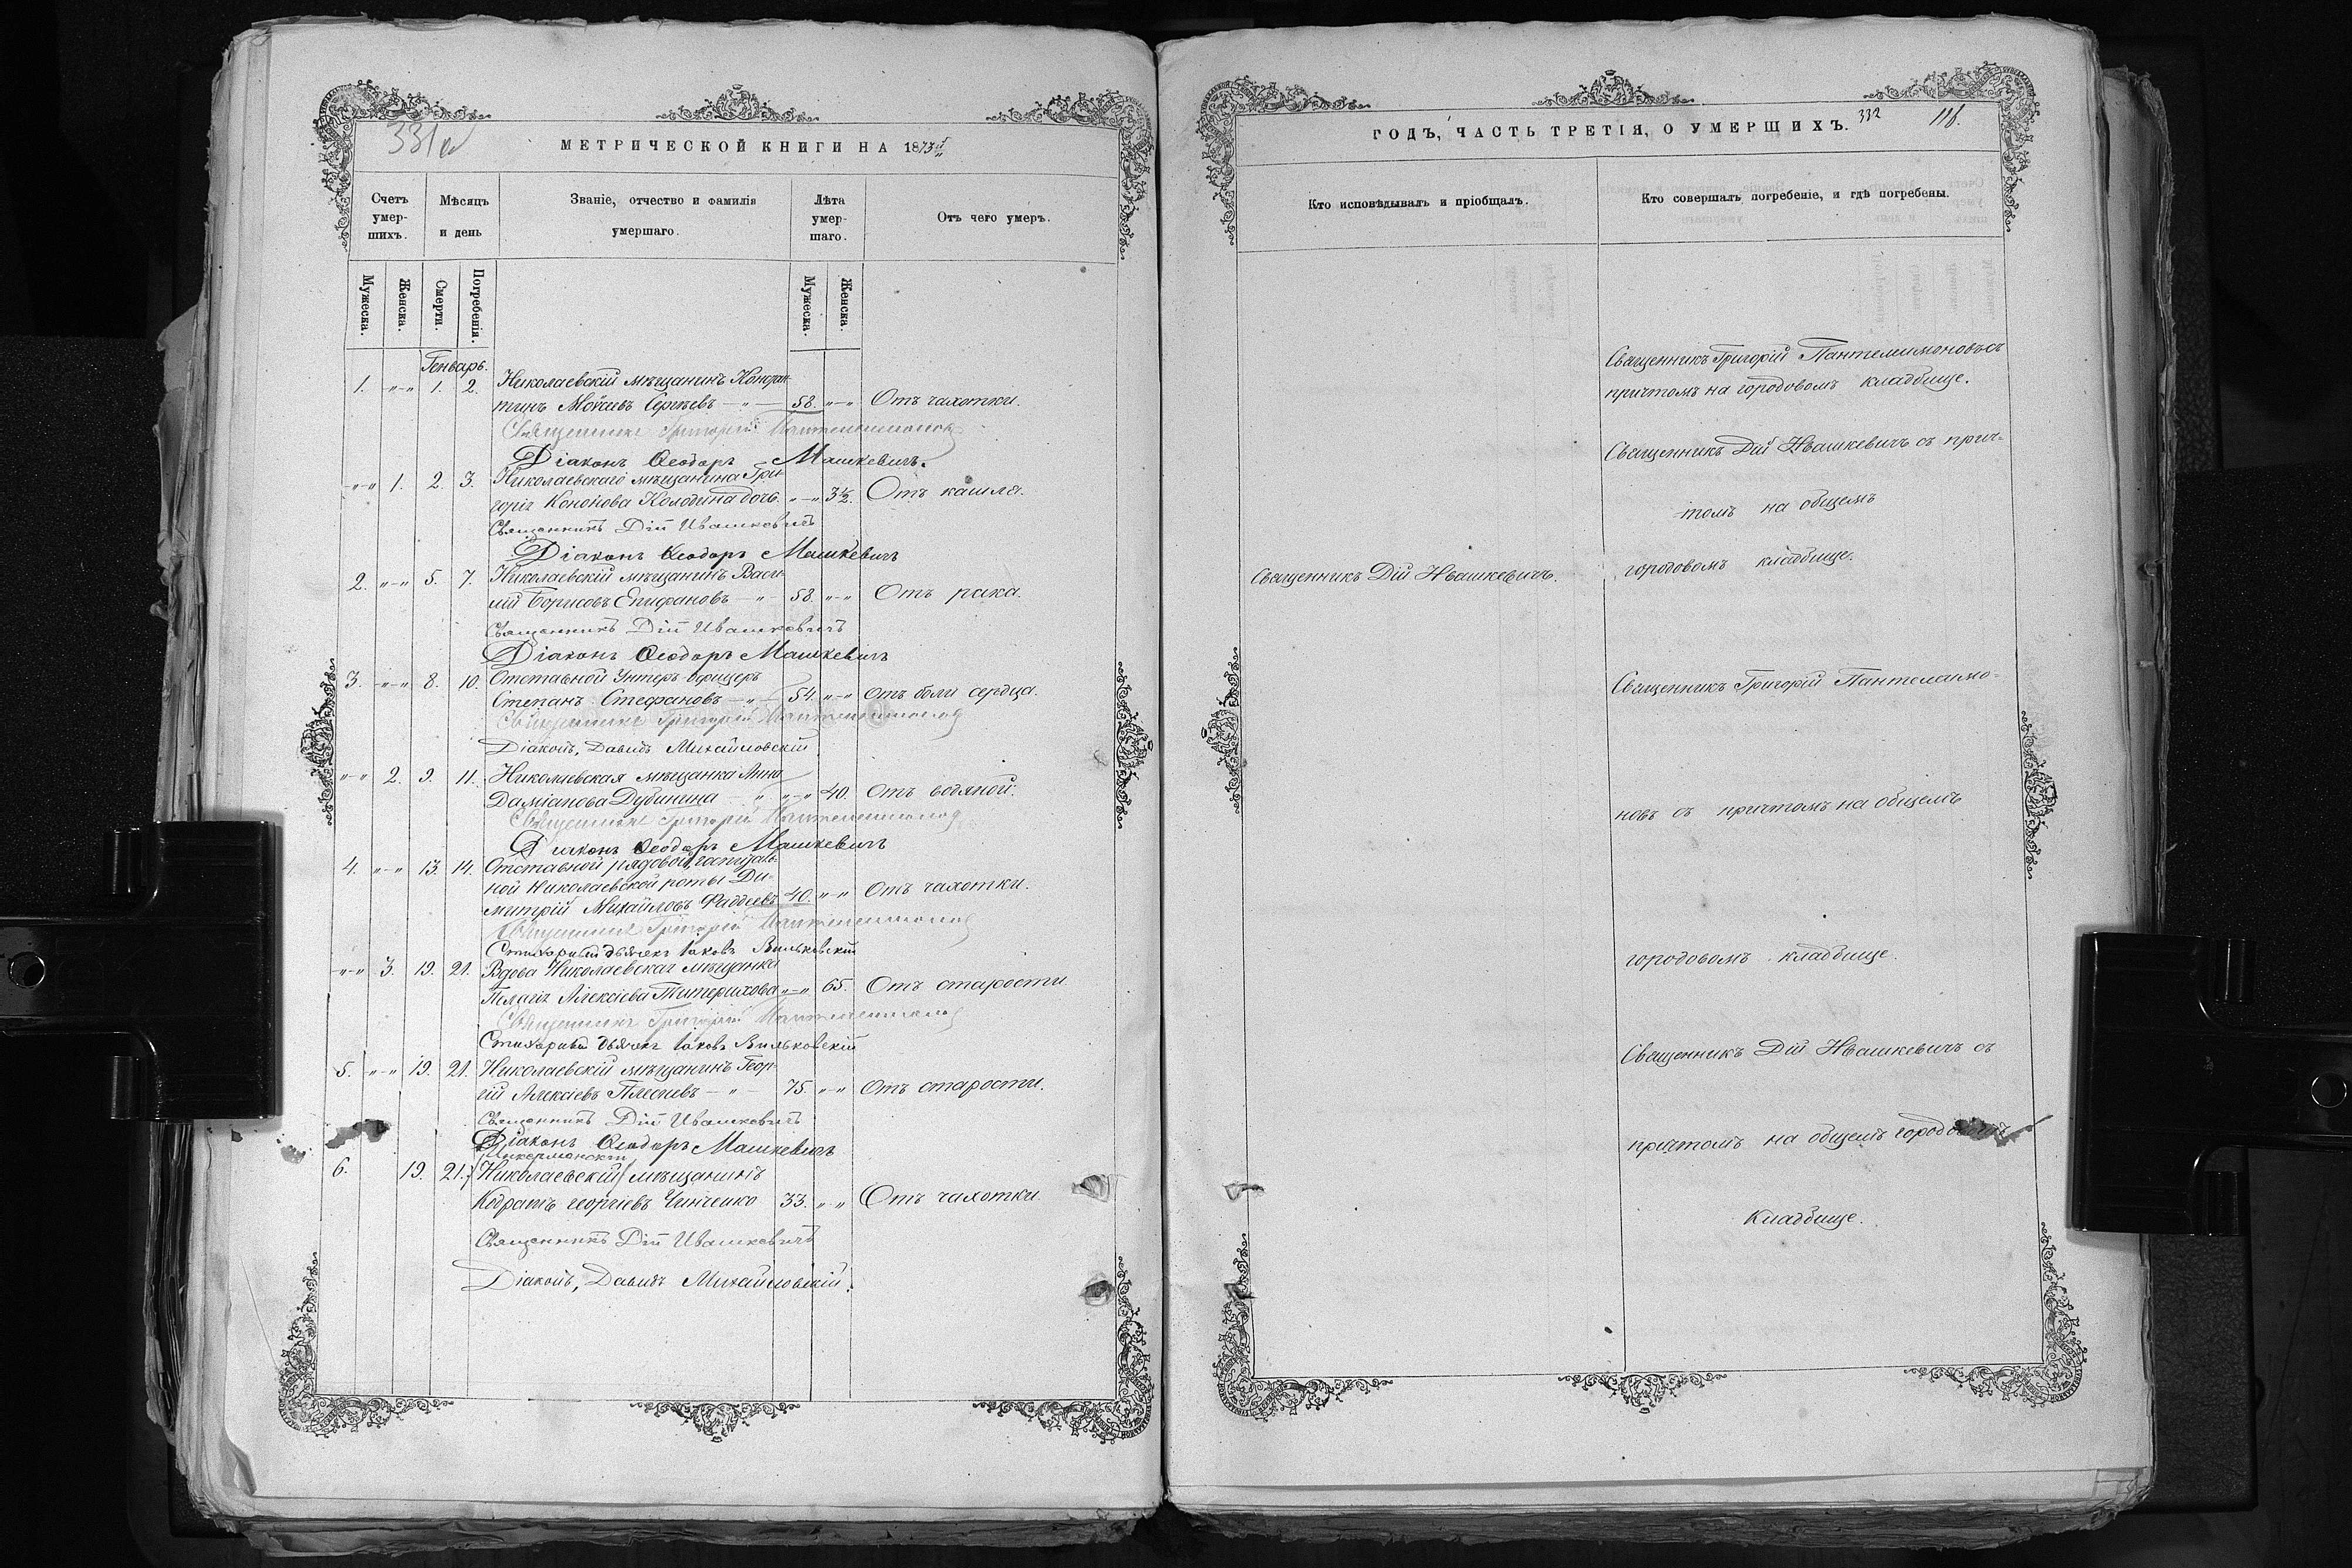 331 об
МЕТРИЧЕСКОЙ КНИГИ НА 1873й
Счетъ умер-шихъ.
Мѣсяцъ и день
Званіе, отчество и фамилія умершаго.
Лѣта умер-шаго.
Отъ чего умеръ.
Мужеска.
Женска.
Смерти.
Погребенія.
Мужеска.
Женска.
Генварь.
1. "-" 1. 2. Николаевскій мѣщанинъ Констан
тинъ Моѵсеевъ Сергѣевъ — " — 58. "-" Отъ чахотки.
Священникъ Григорій Пантелеимоновъ
Діаконъ Ѳеодоръ Машкевичъ.
"-" 1. 2. 3. Николаевскаго мѣщанина Гри-
горія Кононова Колодина дочь. "-" 3½. Отъ кашля.
Священникъ Дій Ивашкевичъ
Діаконъ Ѳеодоръ Машкевичъ
2. "-" 5. 7. Николаевскій мѣщанинъ Васи-
лій Борисовъ Епифановъ — " — 58. "-" Отъ рака.
Священникъ Дій Ивашкевичъ
Діаконъ Ѳеодоръ Машкевичъ
3. "-" 8. 10. Отставной Унтеръ-офицеръ
Степанъ Стефановъ — " 54. "-" Отъ боли сердца.
Священникъ Григорій Пантелеимоновъ
Діаконъ, Давидъ Михайловскій
"-" 2. 9. 11. Николаевская мѣщанка Анна
Даміанова Дубинина — " "-" 40. Отъ водяной.
Священникъ Григорій Пантелеимоновъ
Діаконъ Ѳеодоръ Машкевичъ
4. "-" 13. 14. Отставной рядовой
ной Николаевской роты Ди-
митрій Михайловъ Фаддеевъ 40. "-" Отъ чахотки.
Священникъ Григорій Пантелеимоновъ
Стихарный дьячекъ Іаковъ Вильковскій
"-" 3. 19. 21. Вдова Николаевская мѣщанка
Пелагія Алексіева Титерихова "-" 65. Отъ старости
Священникъ Григорій Пантелеимоновъ
Стихарный дьячекъ Іаковъ Вильковскій
5. "-" 19. 21. Николаевскій мѣщанинъ Геор-
гій Алексіевъ — " — 75. "-" Отъ старости.
Священникъ Дій Ивашкевичъ
Діаконъ Ѳеодоръ Машкевичъ
Инкерманскій
6. 19. 21. Николаевскій мѣщанинъ
Кодратъ Георгіевъ Чинченко 33. " " Отъ чахотки.
Священникъ Дій Ивашкевичъ
Діаконъ, Давидъ Михайловскій.
ГОДЪ, ЧАСТЬ ТРЕТІЯ, О УМЕРШИХЪ.
332
118.
Кто исповѣдывалъ и пріобщалъ.
Кто совершалъ погребеніе, и гдѣ погребены.
Священникъ Григорій Пантелеимоновъ съ
причтомъ на городовомъ кладбище.
Священникъ Дій Ивашкевичъ съ прич-
-томъ на общемъ
городовомъ кладбище.
Священникъ Дій Ивашкевичъ.
Священникъ Григорій Пантелаимо-
новъ съ причтомъ на общемъ
городовомъ кладбище.
Священникъ Дій Ивашкевичъ съ
причтомъ на общемъ городовомъ
Кладбище.